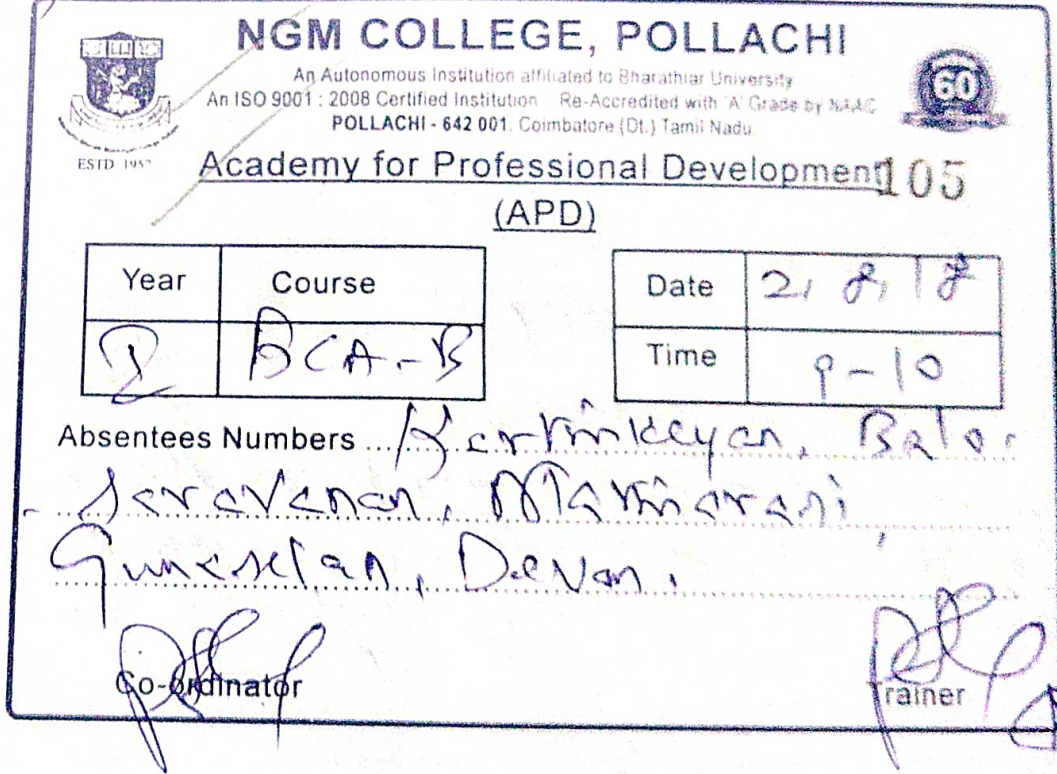 NGM COLLEGE, POLLACHI
An Autonomous Institution affiliated to Bharathiar University
An ISO 9001 : 2008 Certified Institution Re-Accredited with 'A' Grade by NAAC
POLLACHI - 642 001. Coimbatore (Dt.) Tamil Nadu.
60
ESTD 1957
Academy for Professional Development 105
(APD)
Year Course
I BCA-B
Date 2, 8, 18
Time 9-10
Absentees Numbers ... Karthikeyan, Bala
- Saravanan, Mathiarani,
Gunaselan, Devan.
Co-ordinator Trainer